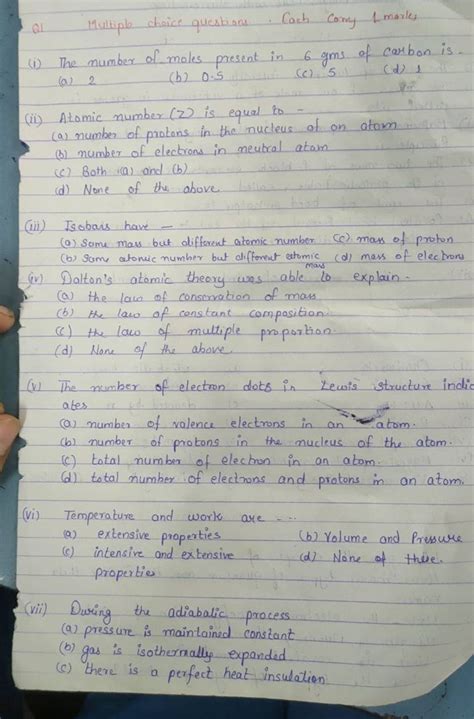 Q1 Multiple choice questions. Each Carry 1 marks
(i) The number of moles present in 6 gms of carbon is -
(a) 2 (b) 0.5 (c) 5 (d) 1
(ii) Atomic number (Z) is equal to -
(a) number of protons in the nucleus of an atom
(b) number of electrons in neutral atom
(c) Both (a) and (b)
(d) None of the above
(iii) Isobars have -
(a) Same mass but different atomic number (c) mass of proton
(b) Same atomic number but different atomic mass (d) mass of electrons
(iv) Dalton's atomic theory was able to explain -
(a) the law of conservation of mass
(b) the law of constant composition
(c) the law of multiple proportion
(d) None of the above.
(v) The number of electron dots in Lewis structure indic
ates
(a) number of valence electrons in an atom.
(b) number of protons in the nucleus of the atom.
(c) total number of electron in an atom.
(d) total number of electrons and protons in an atom.
(vi) Temperature and work are ----
(a) extensive properties (b) Volume and Pressure
(c) intensive and extensive (d) None of these.
properties
(vii) During the adiabatic process
(a) pressure is maintained constant
(b) gas is isothermally expanded
(c) there is a perfect heat insulation